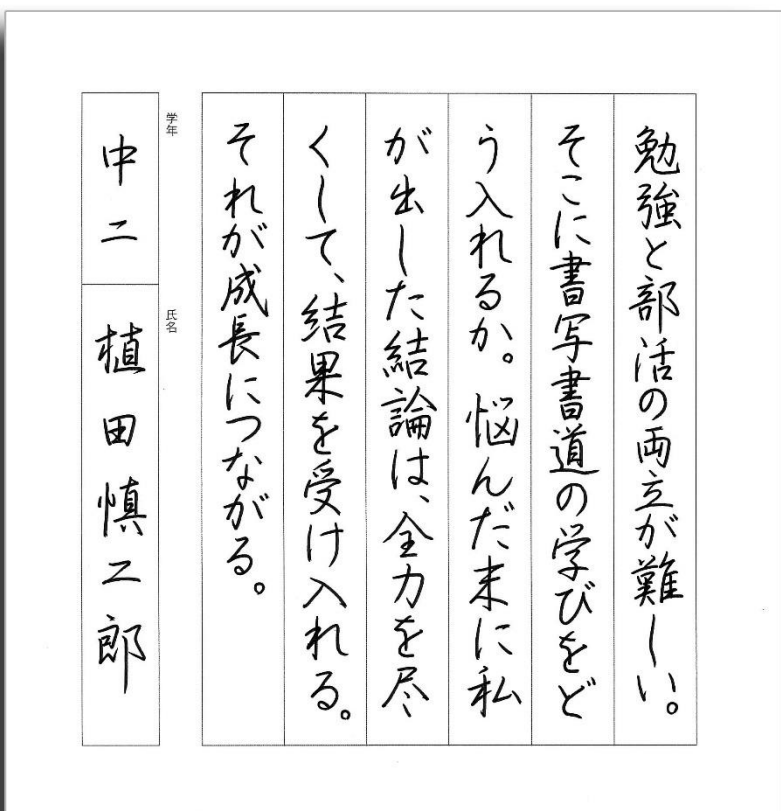 勉強と部活の両立が難しい。
そこに書写書道の学びをど
う入れるか。悩んだ末に私
が出した結論は、全力を尽
くして、結果を受け入れる。
それが成長につながる。
学年
中二
氏名
植田慎二郎